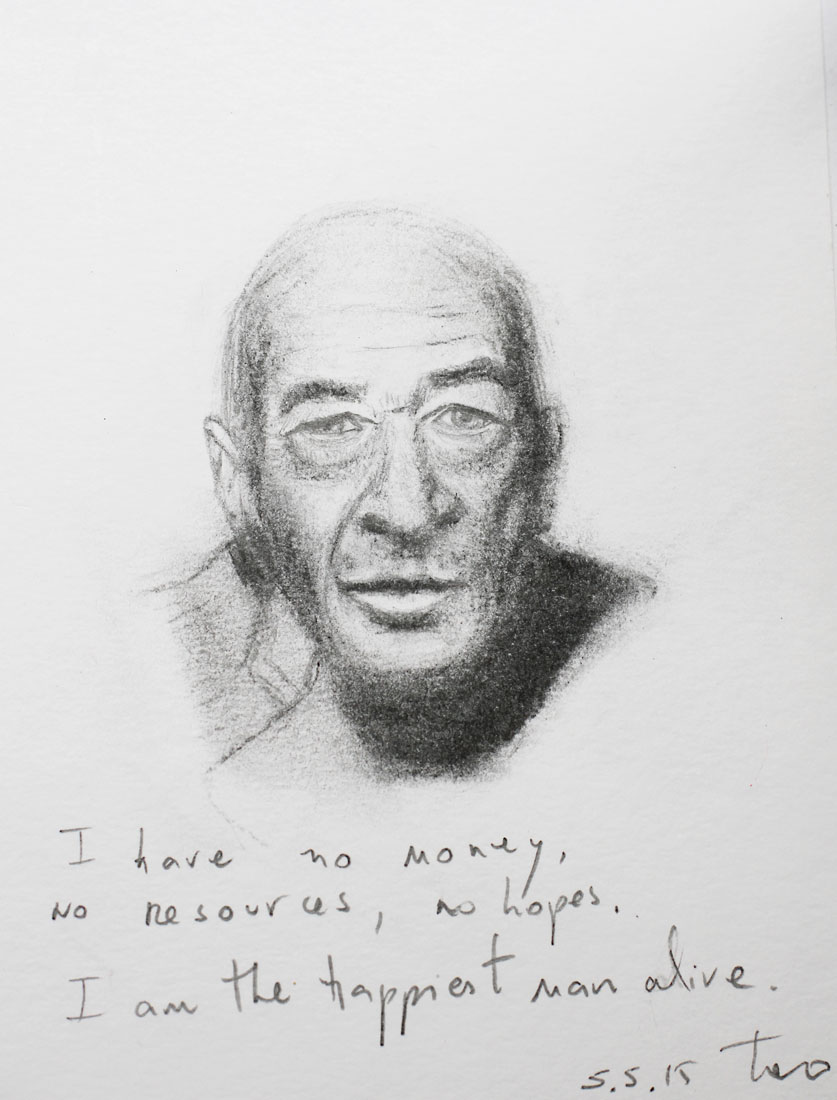 I have no money,
no resources, no hopes.
I am the happiest man alive.
5.5.15